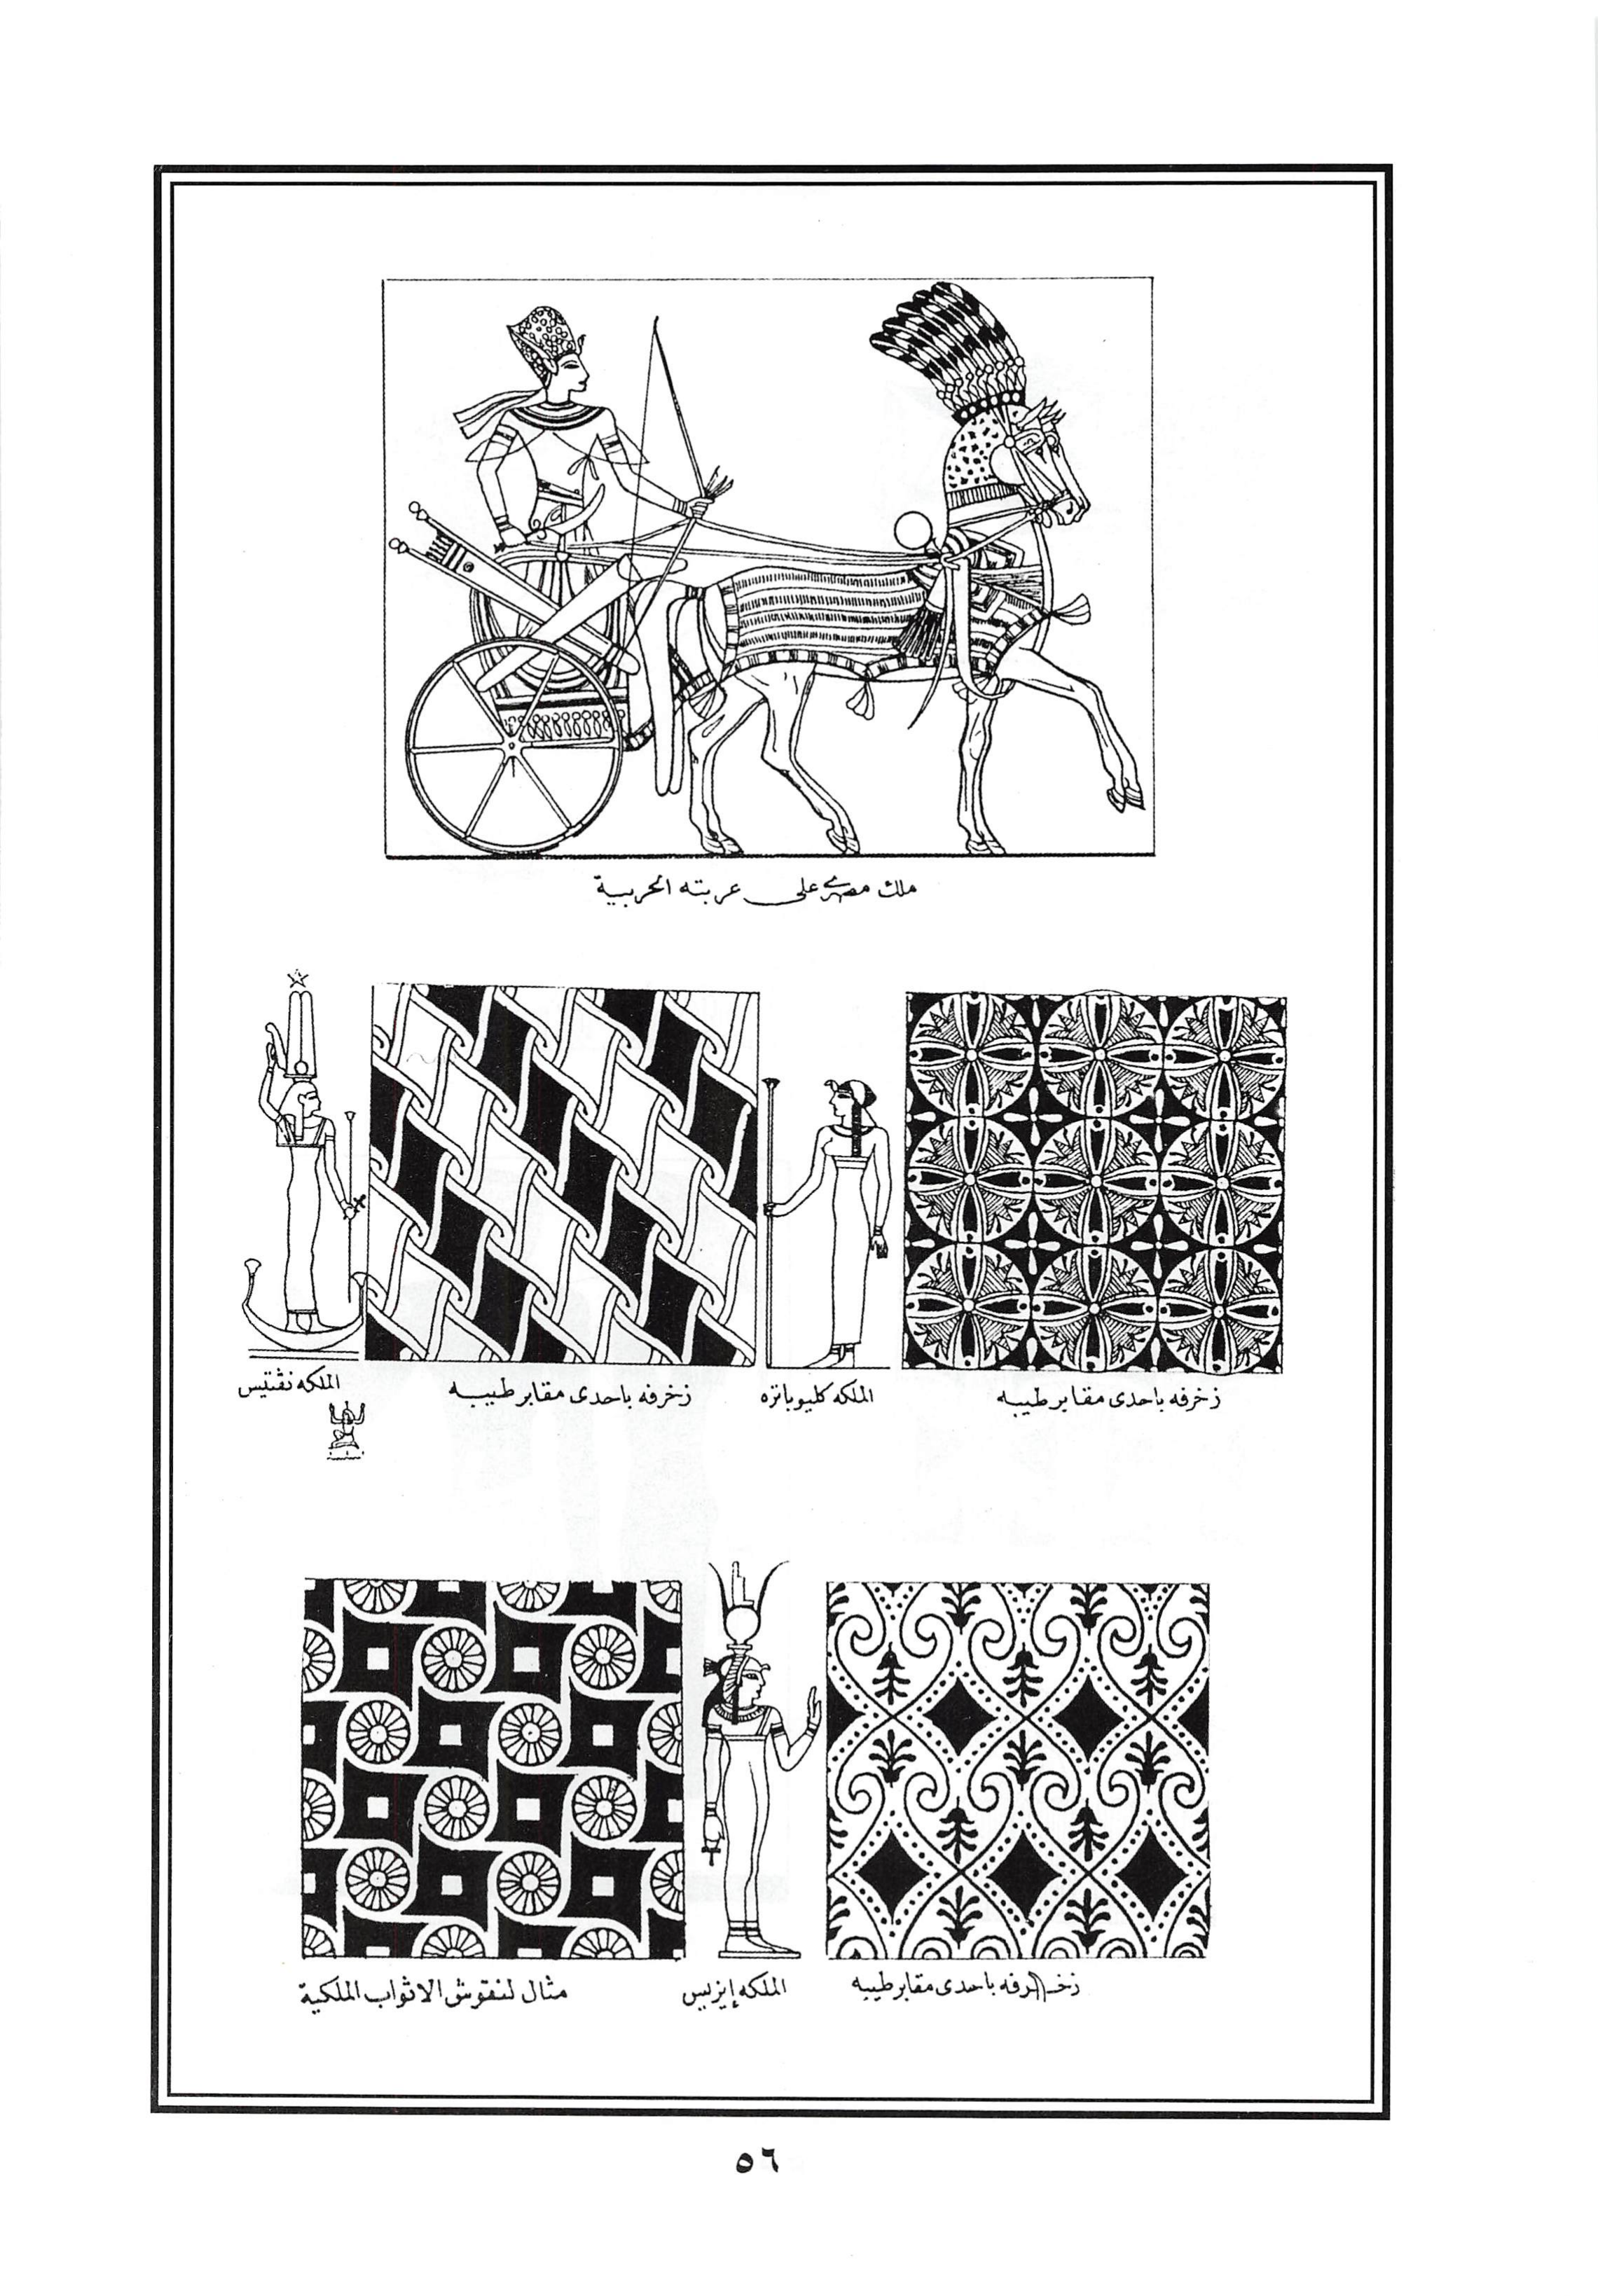 ملك مصري على عربته الحربية
زخرفه باحدى مقابر طيبه
الملكه كليوباتره
زخرفه باحدى مقابر طيبه
الملكه نفتيس
زخرفه باحدى مقابر طيبه
الملكه إيزيس
مثال لنقوش الاثواب الملكية
٥٦